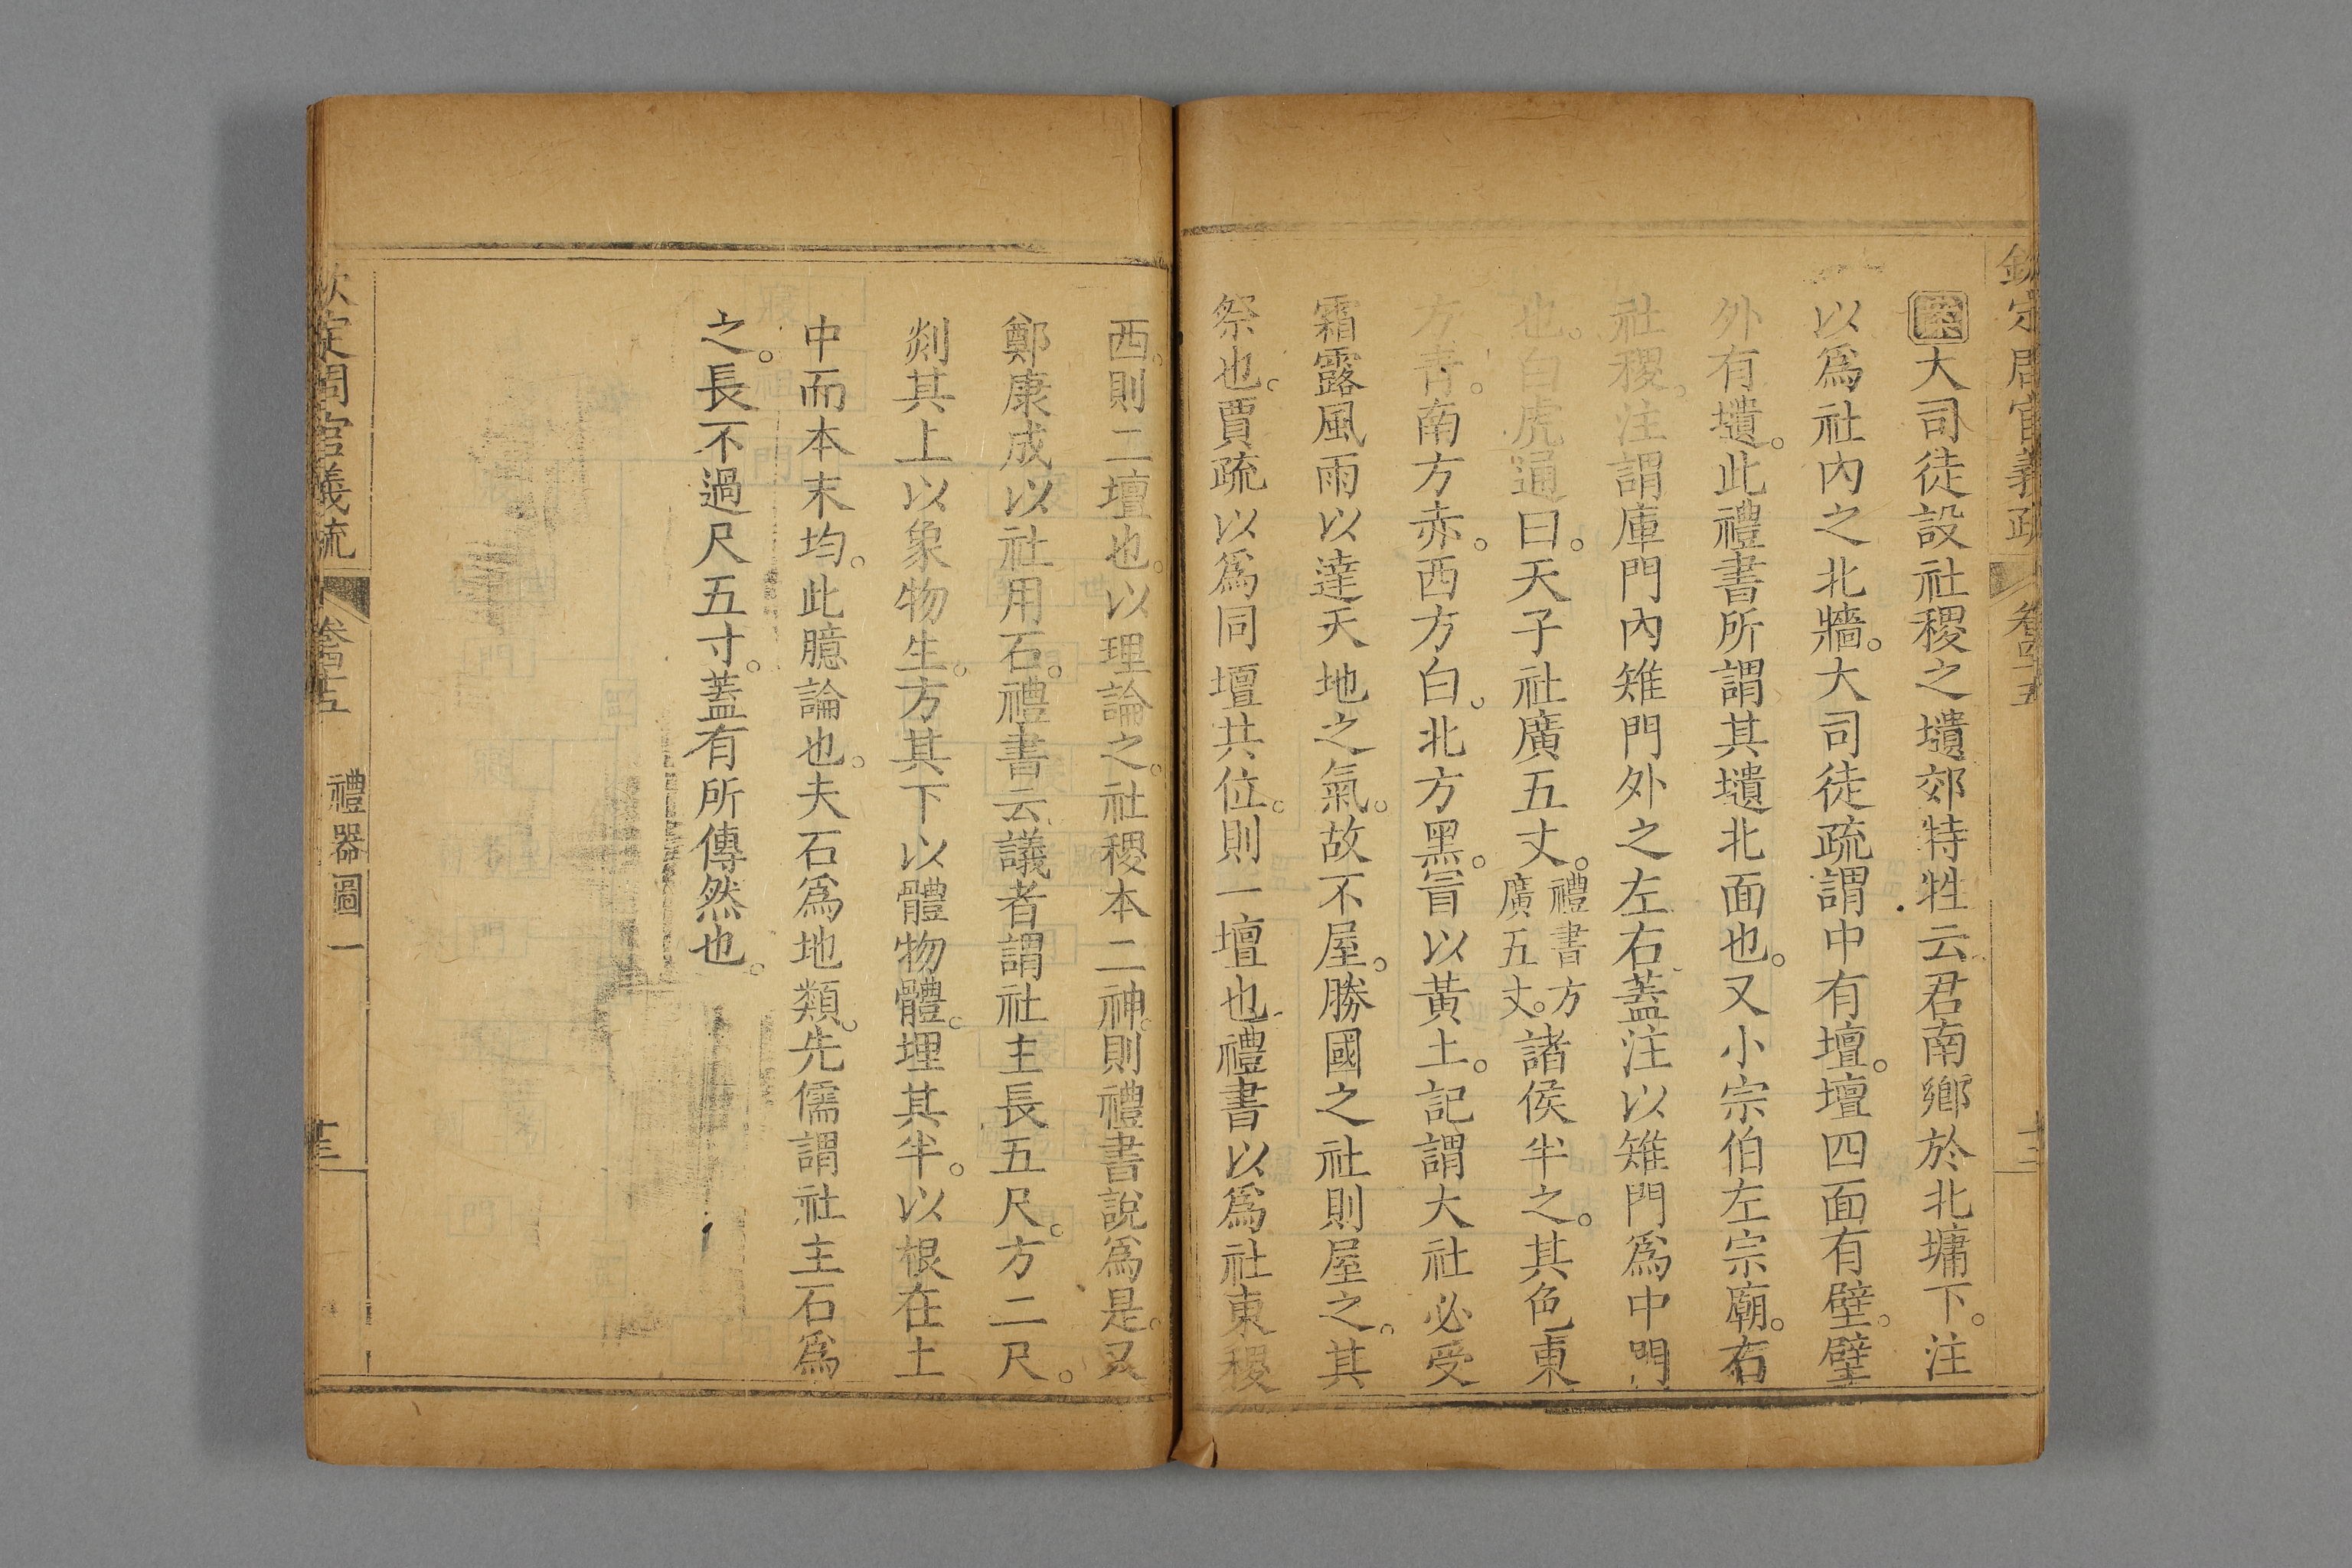 欽定周官義疏 卷四十五 十三
案大司徒設社稷之壝郊特牲云君南鄉於北墉下。注
以爲社內之北牆。大司徒疏謂中有壇。壇四面有壁。壁
外有壝。此禮書所謂其壝北面也。又小宗伯左宗廟。右
社稷。注謂庫門內雉門外之左右蓋注以雉門爲中門
也。白虎通曰。天子社廣五丈。禮書方廣五丈。諸侯半之。其色東
方青。南方赤。西方白。北方黑。冒以黃土。記謂大社必受
霜露風雨以達天地之氣。故不屋。勝國之社則屋之。其
祭也。賈疏以爲同壇共位。則一壇也禮書以爲社東稷
西。則二壇也。以理論之。社稷本二神。則禮書說爲是。又
鄭康成以社用石。禮書云議者謂社主長五尺。方二尺。
剡其上以象物生。方其下以體物體。埋其半。以根在土
中而本末均。此臆論也。夫石爲地類。先儒謂社主石爲
之。長不過尺五寸。蓋有所傳然也。
欽定周官義疏 卷四十五 禮器圖一 十三